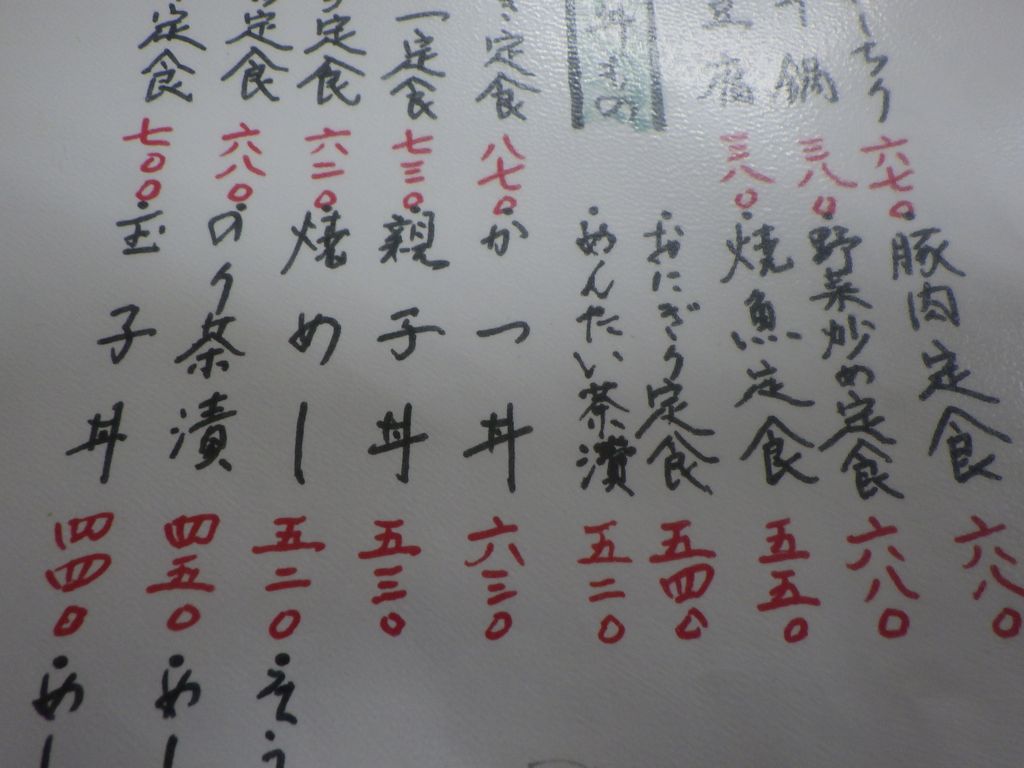 ちり 六七〇
鍋 三八〇
豆腐 三八〇
丼もの
定食 八七〇
定食 七三〇
定食 六二〇
定食 六八〇
定食 七〇〇
・豚肉定食 六八〇
・野菜炒め定食 六八〇
・焼魚定食 五五〇
・おにぎり定食 五四〇
・めんたい茶漬 五二〇
・かつ丼 六三〇
・親子丼 五三〇
・焼めしー 五二〇
・のり茶漬 四五〇
・玉子丼 四四〇
・めー
・めー